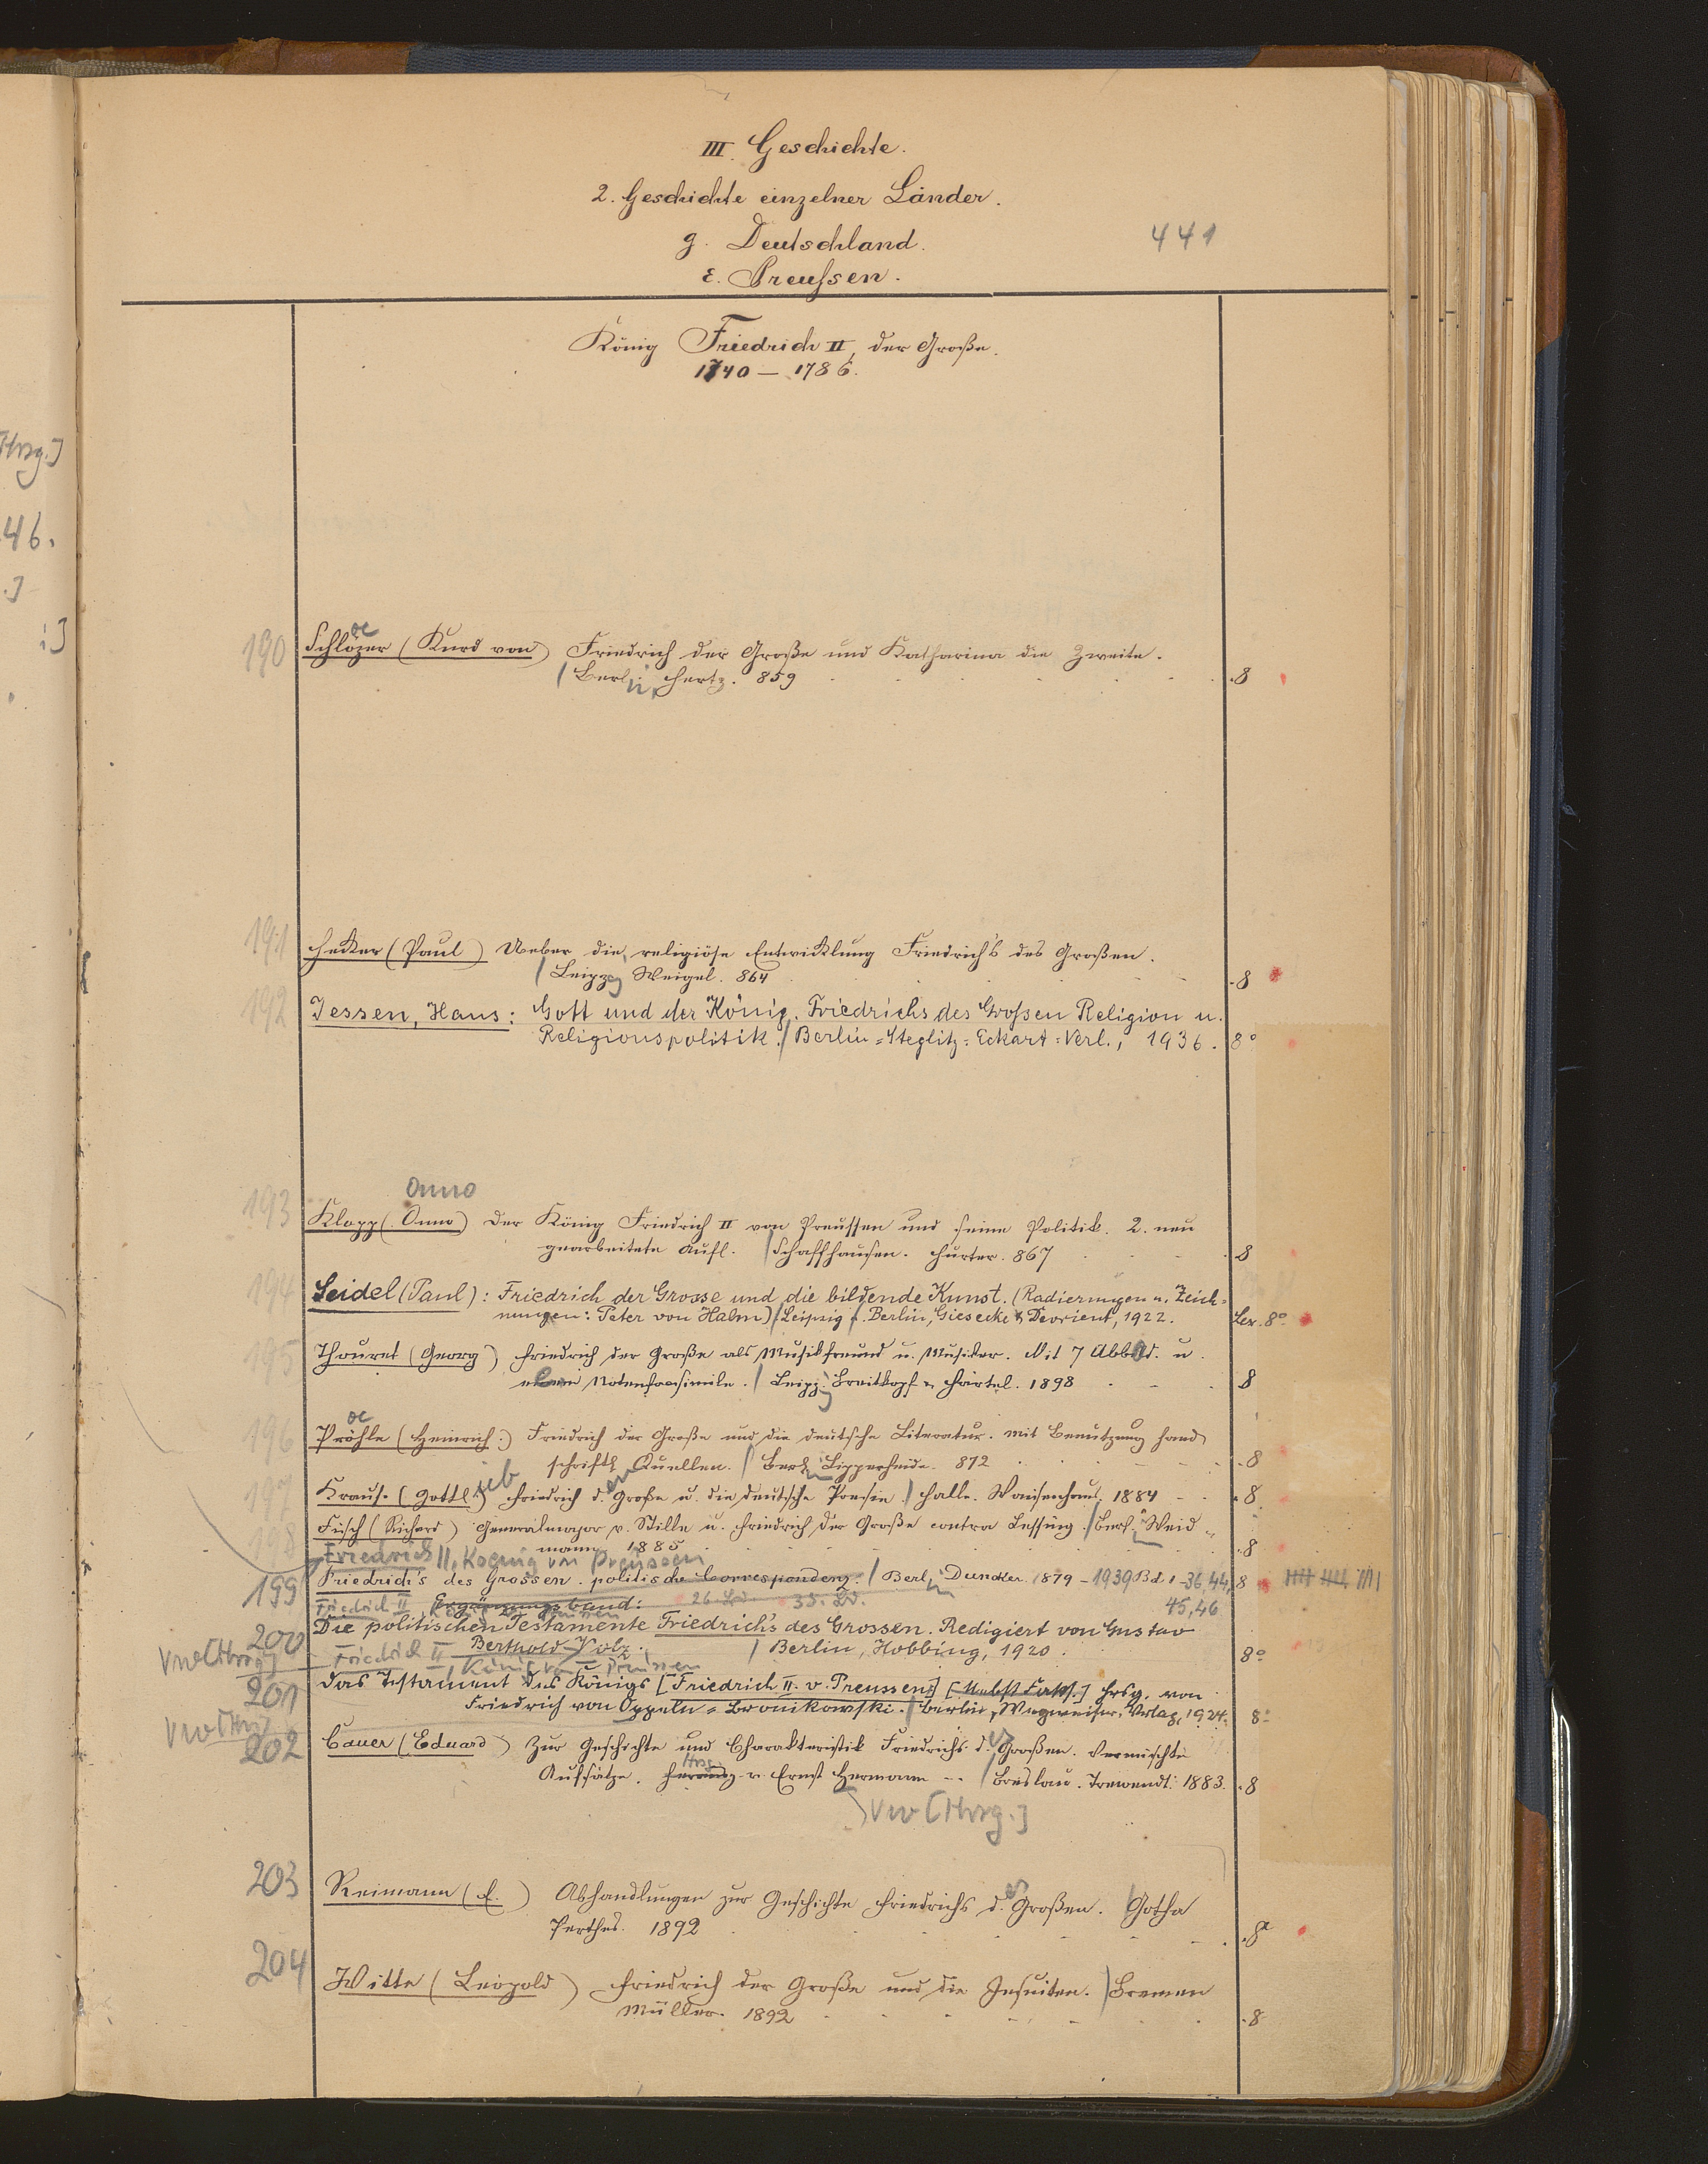 III. Geschichte.
2. Geschichte einzelner Länder.
g. Deutschland.
441
ε. Preußen.
König Friedrich II, der Große.
1740 — 1786.
Hrsg.]
46.
190 Schlözer (Kurd von) Friedrich der Große und Katharina die Zweite.
/ Berlin, Hertz. 859 . 8
191 Hecker (Paul) Ueber die religiöse Entwicklung Friedrich's des Großen.
/ Leipzg Weigel. 864 . 8
192 Jessen, Hans: Gott und der König. Friedrichs des Grossen Religion u.
Religionspolitik. / Berlin-Steglitz: Eckart-Verl., 1936. 8°
Onno
193 Klopp (Onno) Der König Friedrich II von Preussen und seine Politik. 2. neu
gearbeitete Aufl. / Schaffhausen. Hurter. 867 . 8
194 Seidel (Paul): Friedrich der Grosse und die bildende Kunst. (Radierungen u. Zeich-
nungen: Peter von Halm) / Leipzig u. Berlin, Giesecke & Devrient, 1922. Lex. 8°
195 Thouret (Georg) Friedrich der Große als Musikfreund u. Musiker. Mit 7 Abbild. u.
einem Notenfacsimile. / Leipzg Breitkopf u. Härtel. 1898 . 8
196 Pröhle (Heinrich) Friedrich der Große und die deutsche Literatur. Mit Benutzung hand
schriftl. Quellen. / Berlin Lipperheide. 872 . 8
197 Krause (Gottlieb) Friedrich der Große u. die deutsche Poesie. / Halle. Waisenhaus. 1884 . 8
198 Fisch (Richard) Generalmajor v. Stille u. Friedrich der Große contra Lessing. / Berlin Weid
mann 1885 . 8
Friedrich II, Koenig von Preussen
199 Friedrich's des Grossen politische Correspondenz. / Berlin Duncker 1879 - 1939 Bd. 1-36, 44, 8
Friedrich II König v. Preussen Ergänzungsband: 26. Bd. 35. Bd. 45, 46
200 Die politischen Testamente Friedrich's des Grossen. Redigiert von Gustav
Vw [Hrsg.] Friedrich II Berthold Volz. / Berlin, Hobbing, 1920. 8°
König von Preussen
201 Das Testament des Königs [Friedrich II. v. Preussens] [Nebst Faks.] Hrsg. von
Friedrich von Oppeln-Bronikowski. / Berlin, Wegweiser-Verlag, 1924. 8°
Vw [Hrsg]
202 Cauer (Eduard) Zur Geschichte und Charakteristik Friedrichs des Großen. Vermischte
Aufsätze. Herausg. Hrsg v. Ernst Hermann -- / Breslau. Trewendt. 1883. 8
Vw [Hrsg.]
203 Reimann (E.) Abhandlungen zur Geschichte Friedrichs des Großen. / Gotha
Perthes. 1892 . 8°
204 Witte (Leopold) Friedrich der Große und die Jesuiten. / Bremen
Müller. 1892 . 8